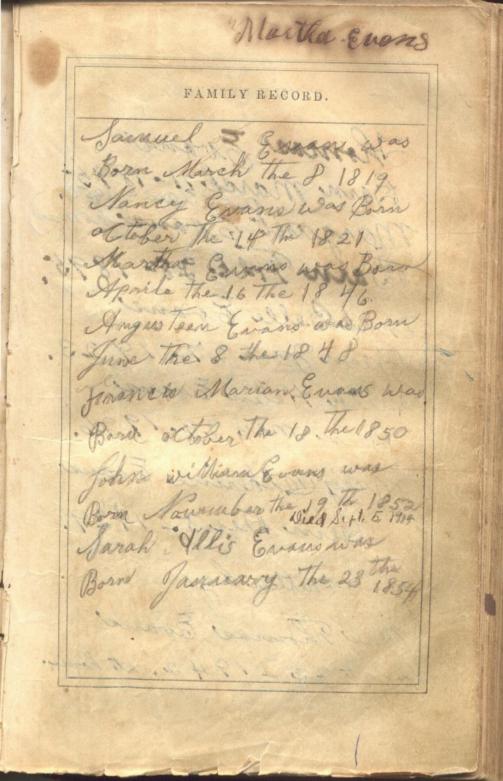 Martha Evans
FAMILY RECORD.
Samuel Evans was
Born March the 8 1819
Nancy Evans was Born
October the 14 th 1821
Martha Evans was Born
Aprile the 16 the 1846
Angusteen Evans was Born
June the 8 the 1848
Francis Marian Evans was
Born October the 18 the 1850
John william Evans was
Born November the 19 th 1852
Died Sept. 5 1914
Sarah Allis Evans was
Born January the 23 the
1854
Thomas Evans